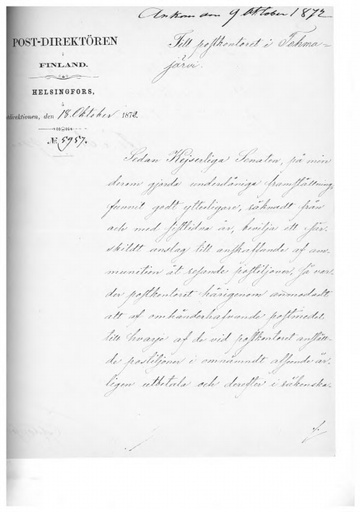 Ankom den 9 Oktober 1872
POST-DIREKTÖREN
i
FINLAND.
HELSINGFORS,
å
direktionen, den 18 Oktober 1872.
№ 5957.
Till postkontoret i Tohma-
järvi.
Sedan Kejserliga Senaten, på min
derom gjorda underdåniga framställning
funnit godt ytterligare, räknadt från
och med sistlidne år, bevilja ett sär-
skildt anslag till anskaffande af am-
munition åt resande postiljoner, så var-
der postkontoret härigenom anmodadt
att af omhänderhafvande postmedel
till hvarje af de vid postkontoret anställ-
de postiljoner i omnämndt afseende år-
ligen utbetala och derefter i räkenska-